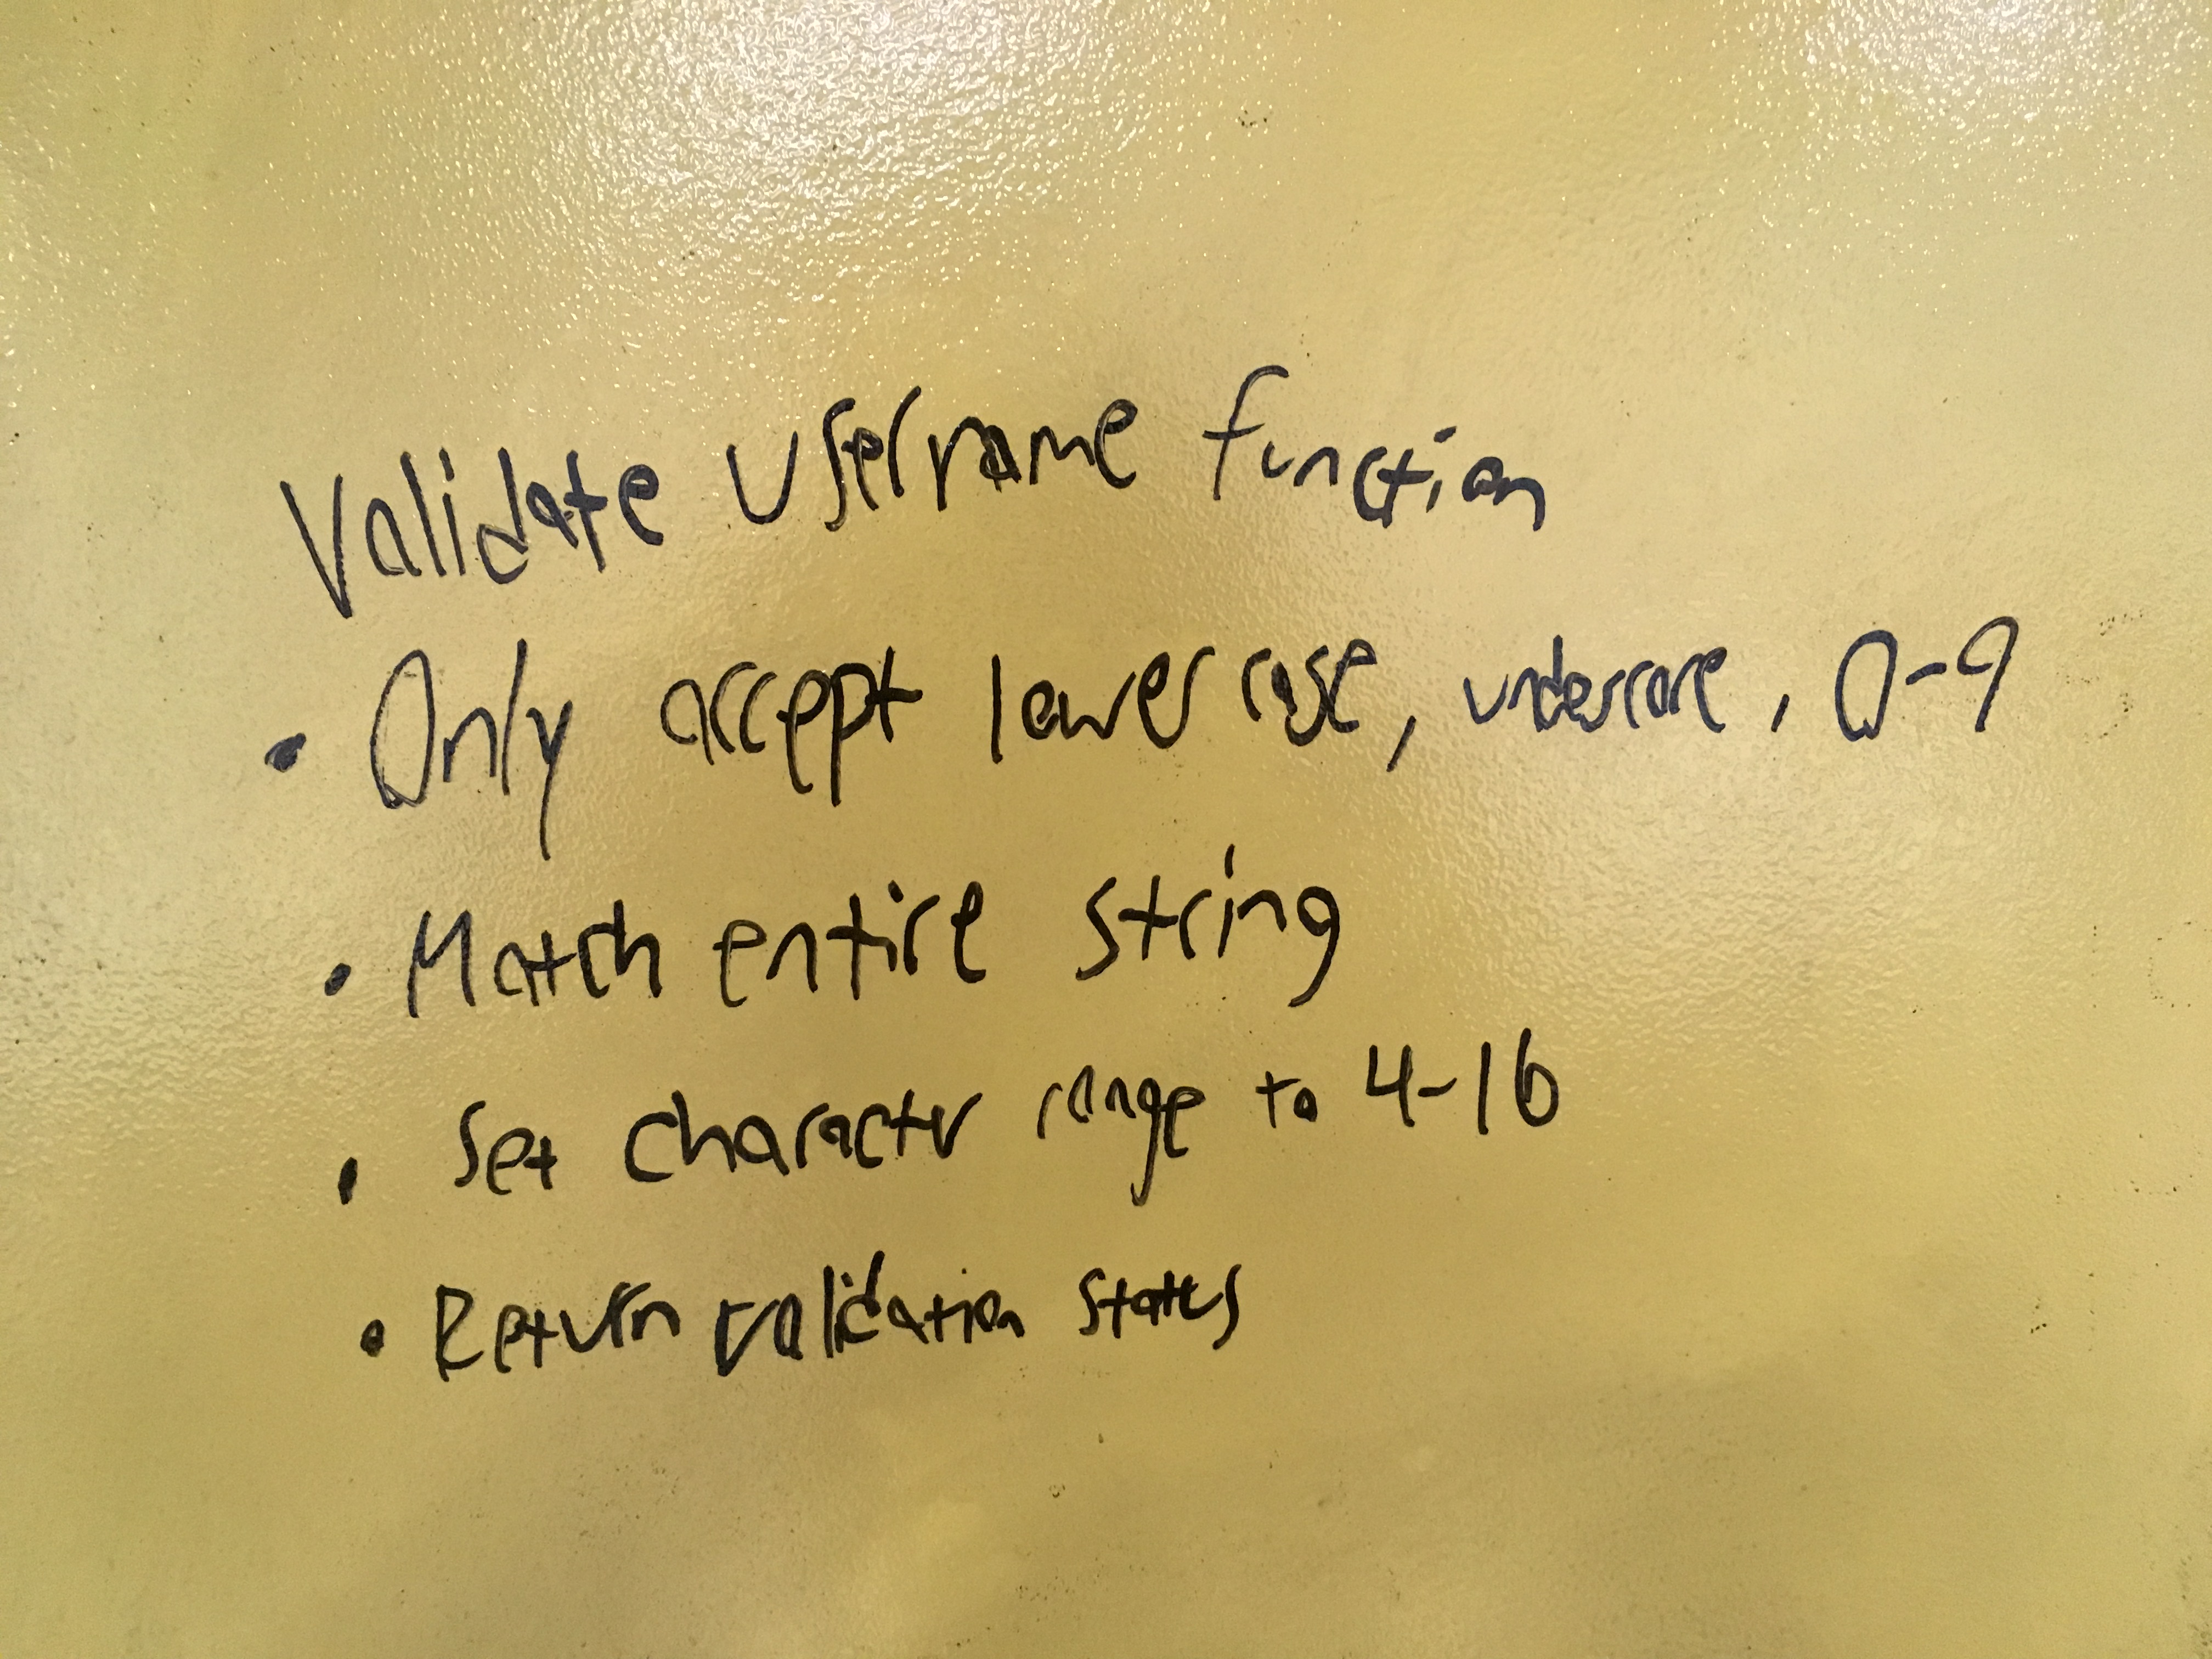 Validate Username function
• Only accept lower case, underscore, 0-9
• Match entire string
• Set character range to 4-16
• Return validation status